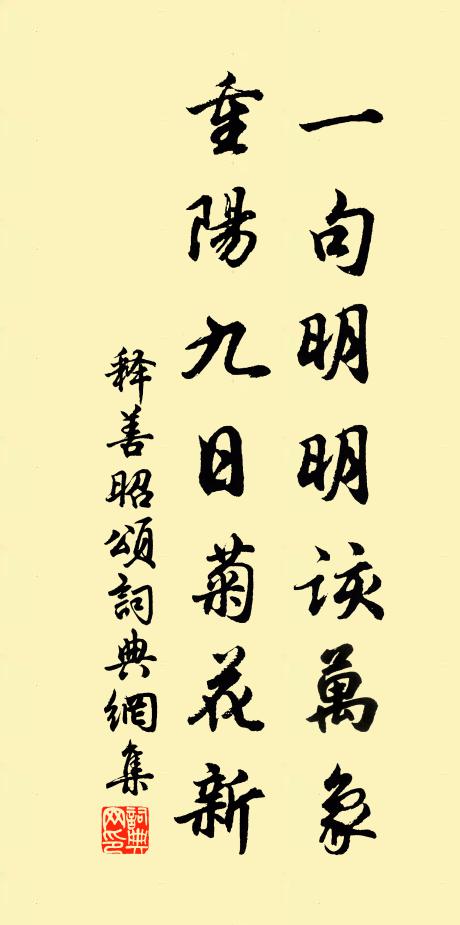 一句明明该萬象
重陽九日菊花新
释善昭頌詞典網集
詞典网印